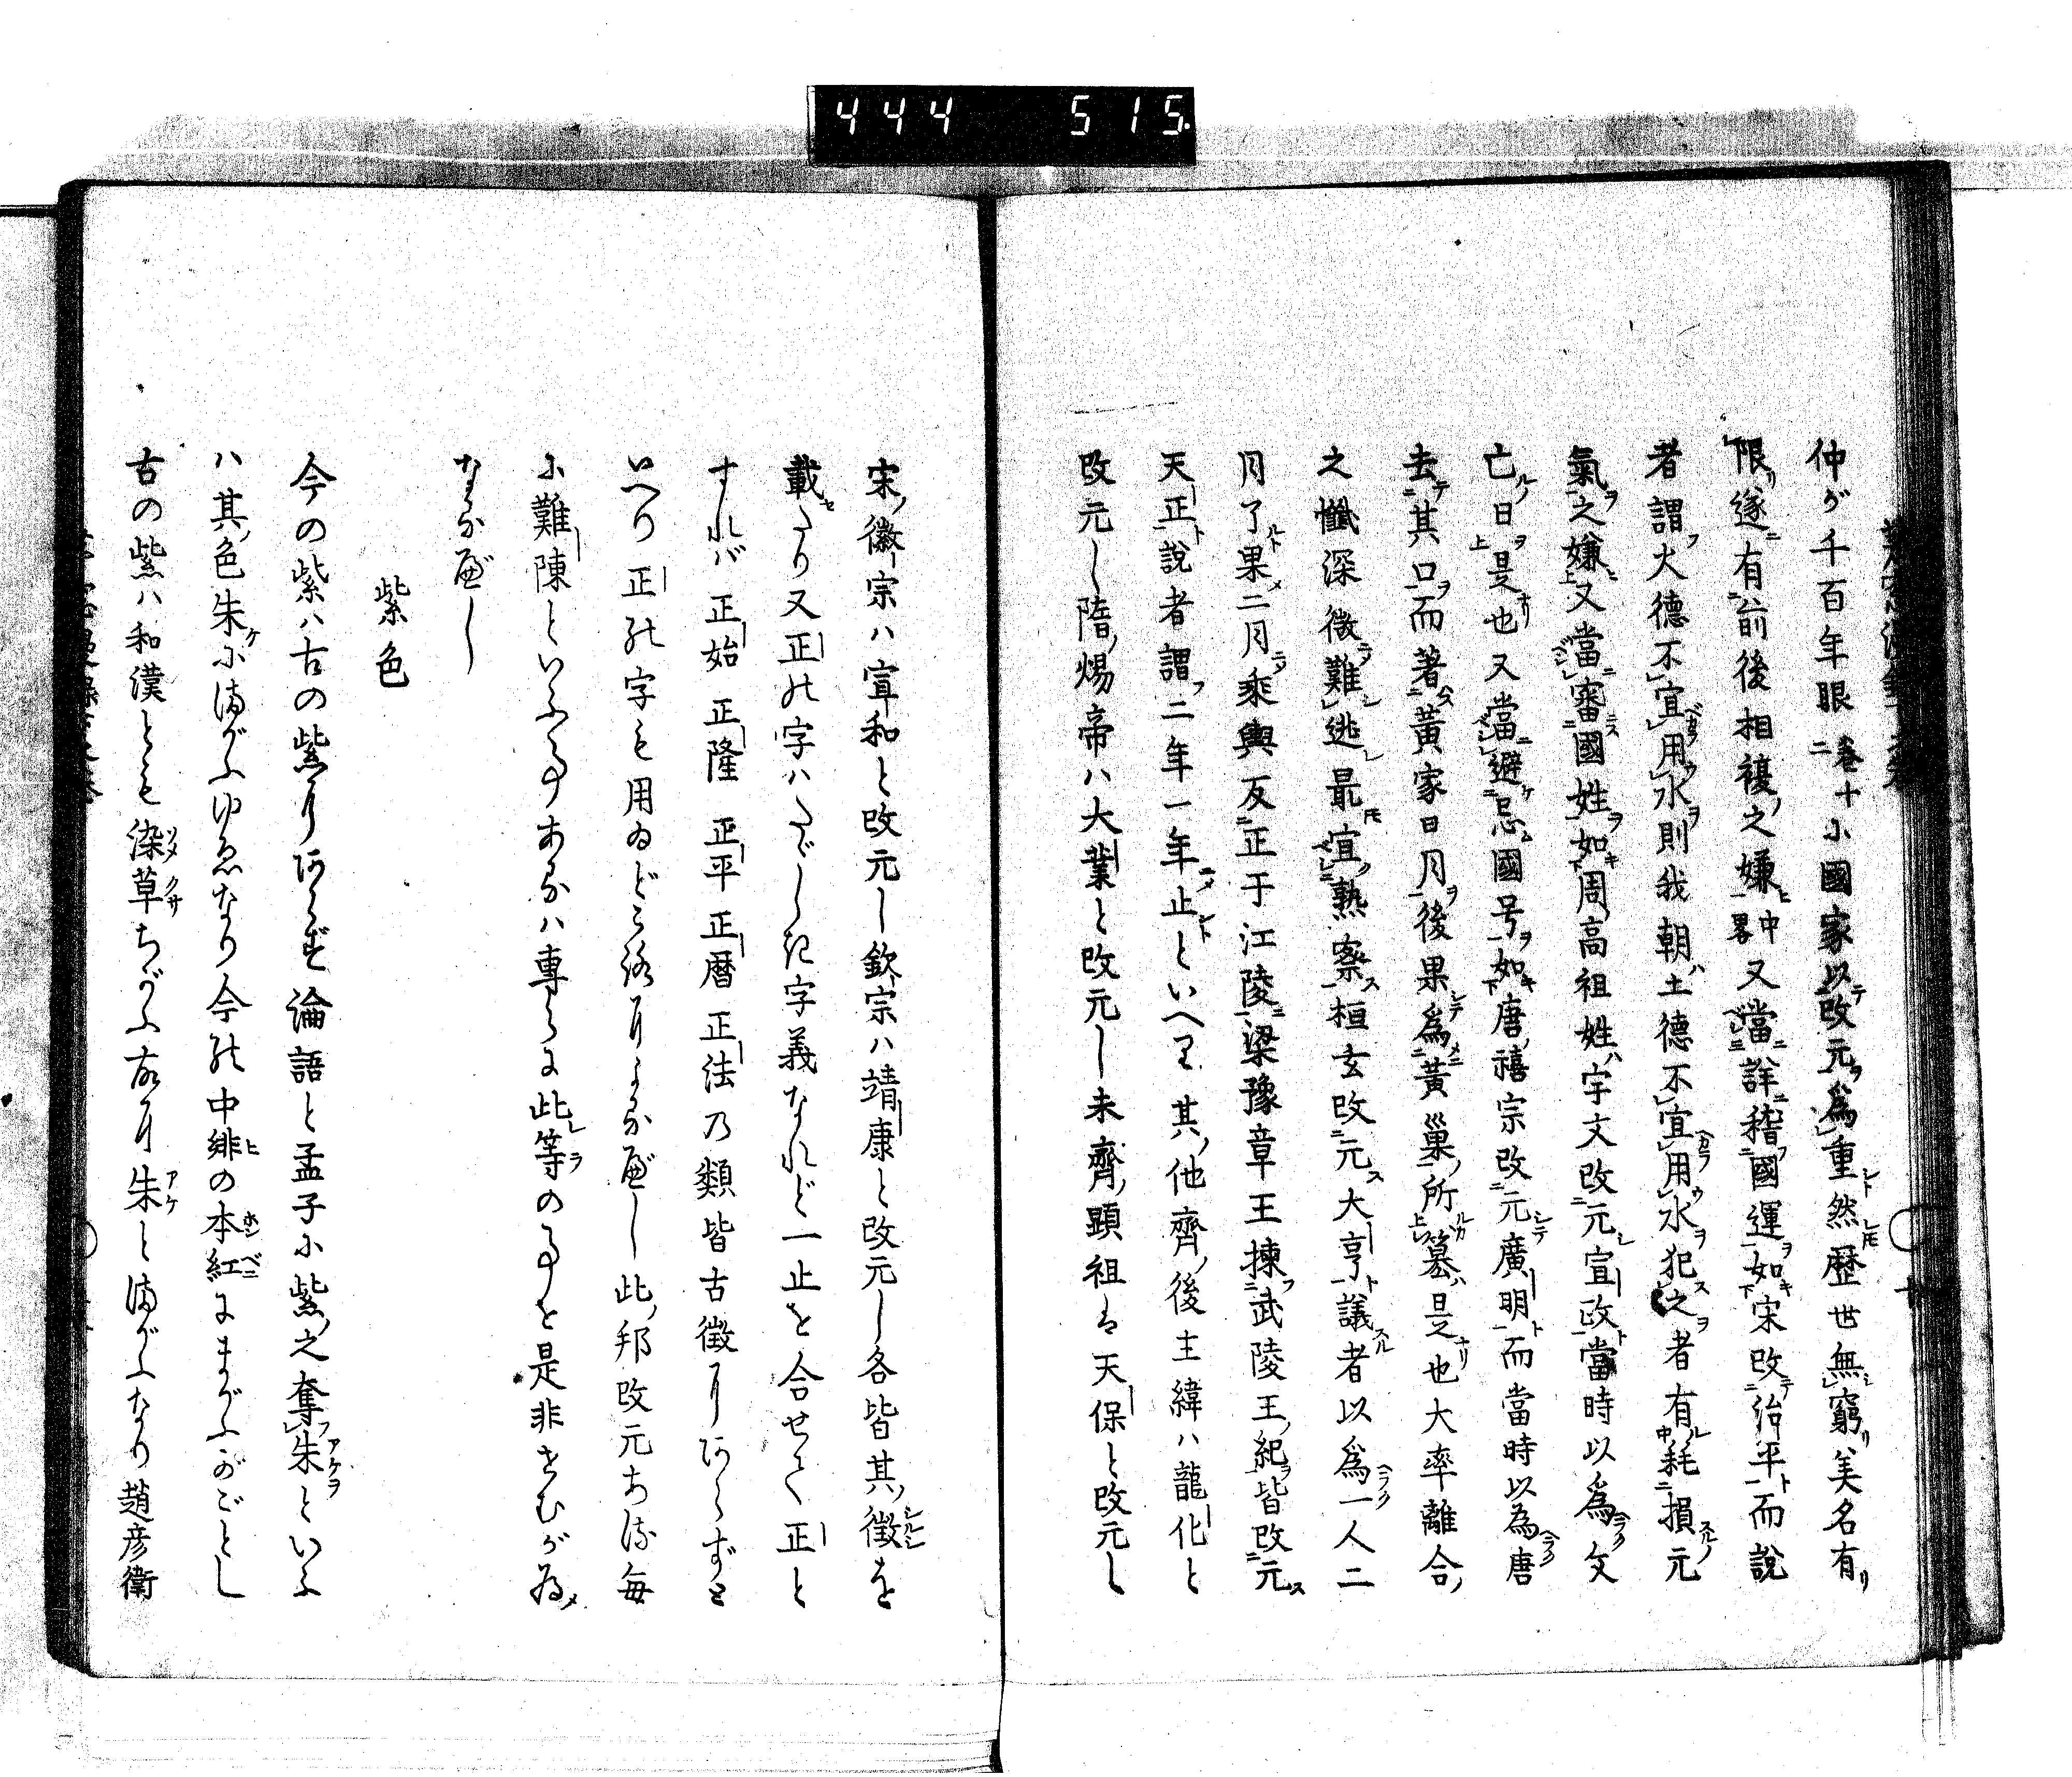 444 515
仲が千百年眼巻十二小國家以改元爲重然歴世無窮美名有
限遂有前後相襍之嫌中畧又當詳稽國運如宋改治平而説
者謂火德不宜用水則我朝土德不宜用水犯之者有耗損元
氣之嫌又當審國姓如周高祖姓宇文改元宣政當時以爲文
亡日是也又當避忌國号如唐僖宗改元廣明而當時以為唐
去其口而著黄家日月後果爲黄巢所簒是也大率離合
之懺深微難逃最宜熟察桓玄改元大亨議者以爲一人二
月了果二月乘輿反正于江陵梁豫章王揀武陵王紀皆改元
天正説者謂二年一年止といへり其他齊後主緯ハ龍化と
改元し隋煬帝ハ大業と改元し未齊顕祖は天保と改元し
宋徽宗ハ宣和と改元し欽宗ハ靖康と改元し各皆其徴を
載たり又正の字ハたゞしき字義なれど一止を合せて正と
すれバ正始正隆正平正暦正法乃類皆古徴にあらずと
いへり正の字も用ゐどころによるべし此邦改元ある毎
に難陳といふ事あるハ専らに此等の事を是非せむが為
なるべし
紫色
今の紫ハ古の紫にあらず論語と孟子に紫之奪朱といふ
ハ其色朱にまがふゆゑなり今の中緋の本紅にまがふがごとし
古の紫ハ和漢とも染草ちがふ故に朱とまがふなり趙彦衛